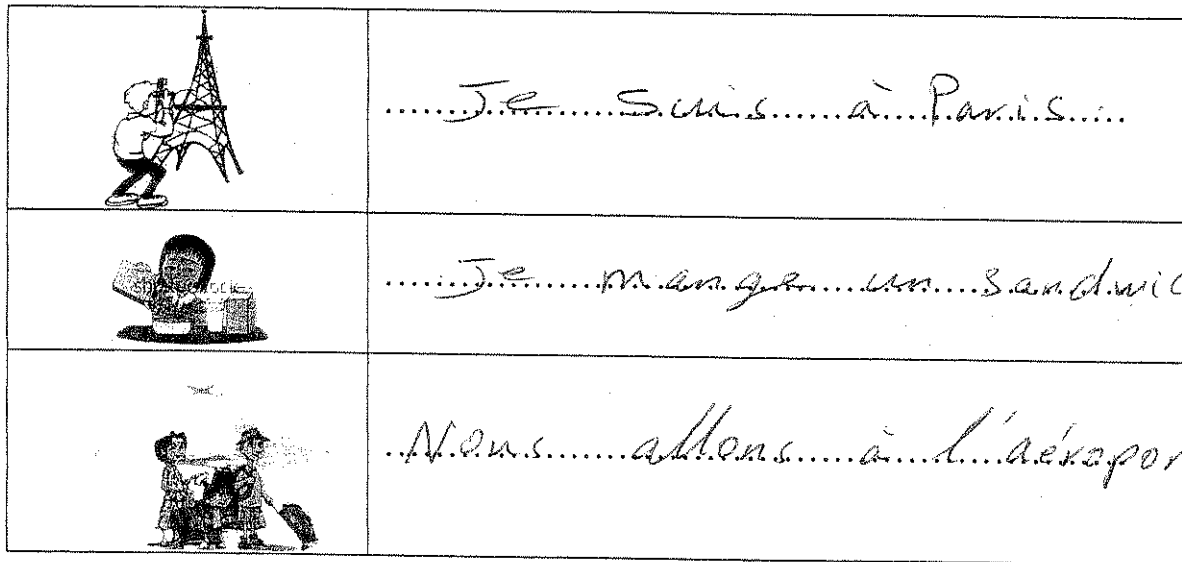 Je suis à Paris
Je mange un sandwic
Nous allons à l'aéropor